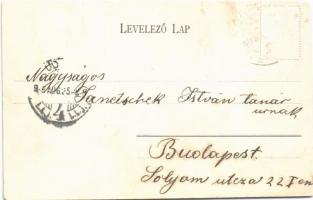 LEVELEZŐ LAP
Nagyságos
Janetschek István tanár
urnak
Budapest.
Sólyom utcza 22 I em